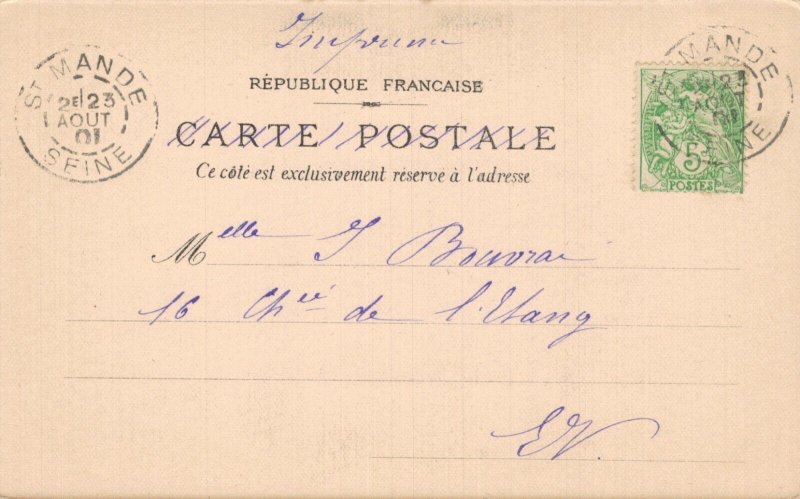 Imprimé
RÉPUBLIQUE FRANCAISE
CARTE POSTALE
Ce côté est exclusivement réservé à l'adresse
ST MANDE
2E 23
AOUT
01
SEINE
MANDE
23
AOUT
01
5
POSTES
Melle J Bouvrai
16 Chée de l'Etang
EV.